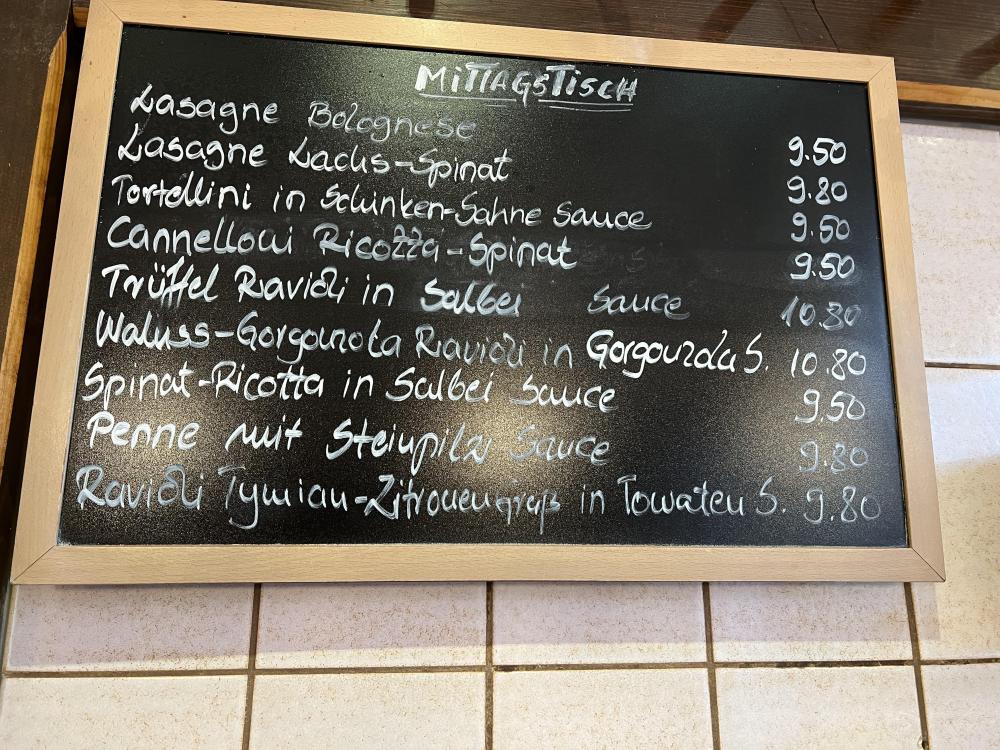 MITTAGSTISCH
Lasagne Bolognese 9.50
Lasagne Lachs-Spinat 9.80
Tortellini in Schinken-Sahne Sauce 9.50
Cannelloni Ricotta-Spinat 9.50
Trüffel Ravioli in Salbei Sauce 10.80
Waluss-Gorgonzola Ravioli in Gorgonzola S. 10.80
Spinat-Ricotta in Salbei Sauce 9.50
Penne mit Steinpilz Sauce 9.80
Ravioli Tymian-Zitronengraß in Tomaten S. 9.80